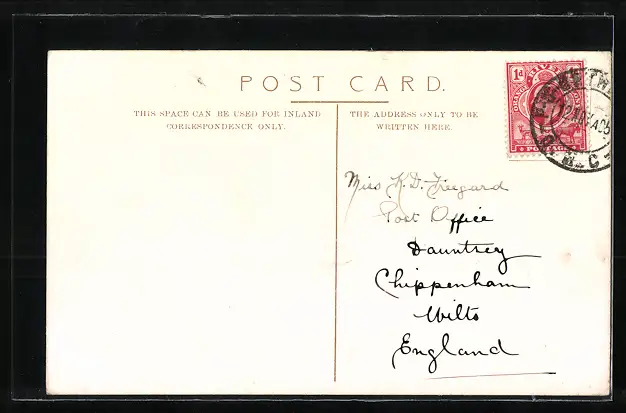 POST CARD.
THIS SPACE CAN BE USED FOR INLAND
CORRESPONDENCE ONLY.
THE ADDRESS ONLY TO BE
WRITTEN HERE.
1d
ORANGE RIVER COLONY
POSTAGE
Miss K. D. Freegard
Post Office
Dauntsey
Chippenham
Wilts
England